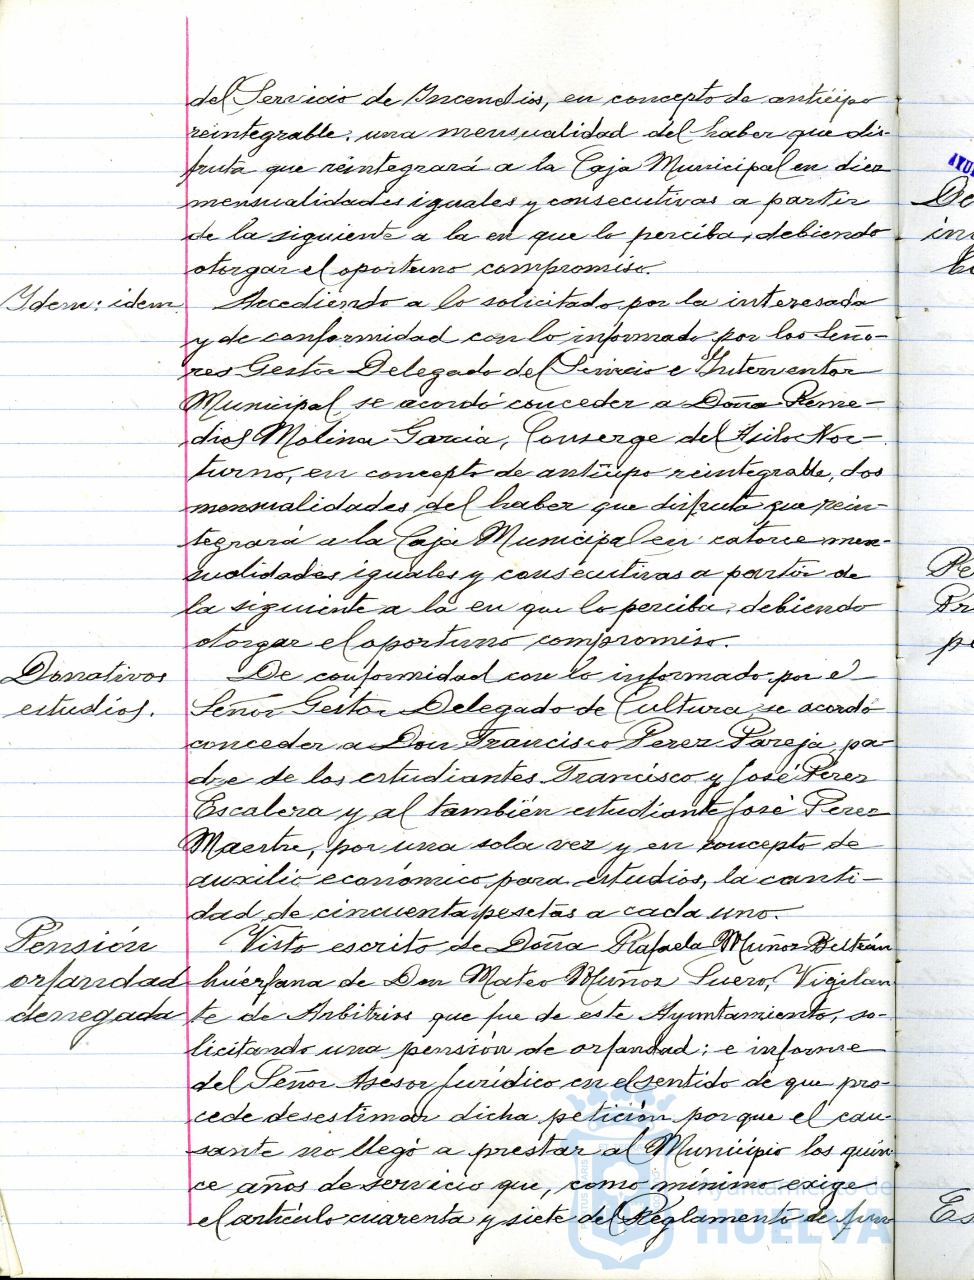 del Servicio de Incendios, en concepto de anticipo
reintegrable, una mensualidad del haber que dis-
fruta que reintegrará a la Caja Municipal en diez
mensualidades iguales y consecutivas a partir
de la siguiente a la en que lo perciba, debiendo
otorgar el oportuno compromiso.
Ydem: idem.
Accediendo a lo solicitado por la interesada
y de conformidad con lo informado por los Seño-
res Gestor Delegado del Servicio e Interventor
Municipal, se acordó conceder a Doña Reme-
dios Molina García, Conserge del Asilo Noc-
turno, en concepto de anticipo reintegrable, dos
mensualidades del haber que disfruta que rein-
tegrará a la Caja Municipal en catorce men-
sualidades iguales y consecutivas a partir de
la siguiente a la en que lo perciba, debiendo
otorgar el oportuno compromiso.
Donativos
estudios.
De conformidad con lo informado por el
Señor Gestor Delegado de Cultura, se acordó
conceder a Don Francisco Perez Pareja, pa-
dre de los estudiantes Francisco y José Pérez
Escalera y al también estudiante José Perez
Maestre, por una sola vez y en concepto de
auxilio económico para estudios, la canti-
dad de cincuenta pesetas a cada uno.
Pensión
orfandad
denegada
Visto escrito de Doña Rafaela Muñoz Beltrán
huérfana de Don Mateo Muñoz Suero, Vigilan-
te de Arbitrios que fue de este Ayuntamiento, so-
licitando una pensión de orfandad; e informe
del Señor Asesor Jurídico en el sentido de que pro-
cede desestimar dicha petición porque el cau-
sante no llegó a prestar al Municipio los quin-
ce años de servicio que, como mínimo exige
el artículo cuarenta y siete del Reglamento de fun-
Ayuntamiento de
HUELVA